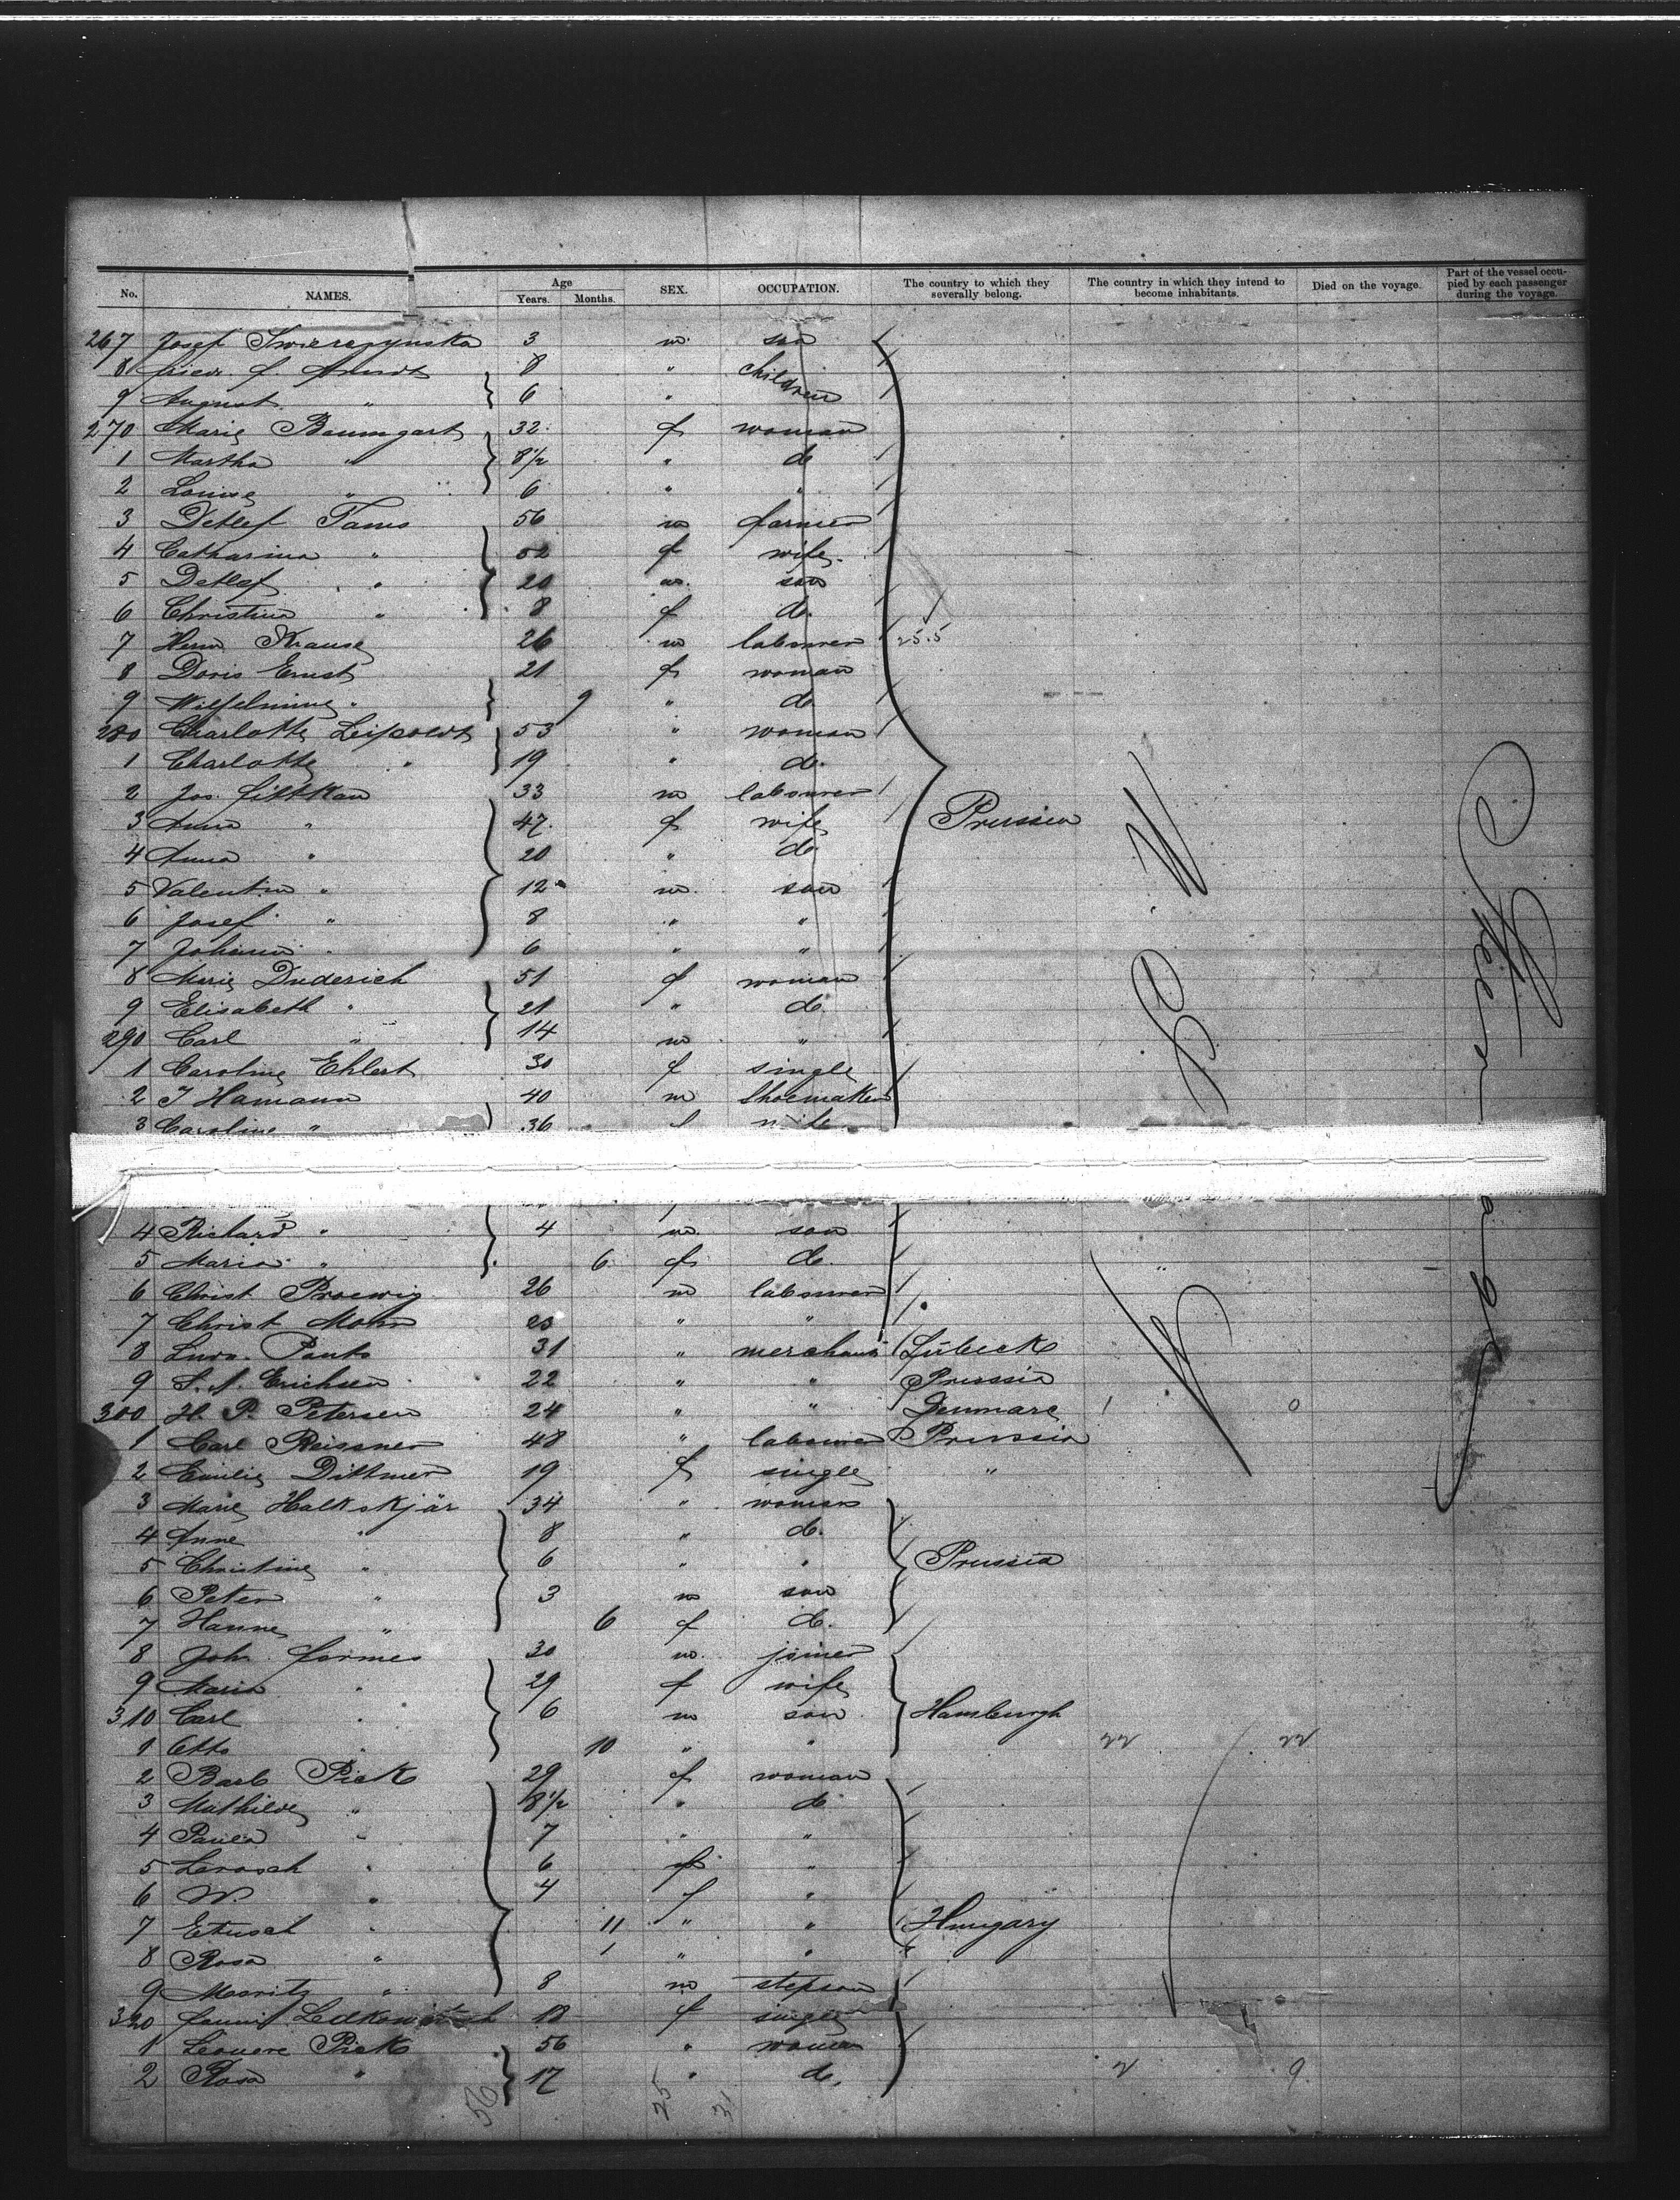 No. NAMES. Age Years. Months. SEX. OCCUPATION. The country to which they severally belong. The country in which they intend to become inhabitants. Died on the voyage. Part of the vessel occupied by each passenger during the voyage.
267 Josef Swierczynska 3 m son
8 Arndt 8 " children
9 August " 6 "
270 Marie Baumgart 32 f woman
1 Martha " 8 1/2 " do
2 Louise " 6 " "
3 Detlef Tams 56 m farmer
4 Catharina " 52 f wife
5 Detlef " 20 m son
6 Christina " 8 f do.
7 Herm Krause 26 m labourer 25.5
8 Doris Ernst 21 f woman
9 Wilhelmine " 9 " do
280 Charlotte Leipoldt 53 " woman
1 Charlotte " 19 " do.
2 Jos. Fittkau 33 m labourer
3 Anna " 47 f wife Prussia
4 Anna " 20 " do
5 Valentin " 12 m son
6 Josef " 8 " "
7 Johann " 6 " "
8 Marie Duderich 51 f woman
9 Elisabeth " 21 " do
290 Carl " 14 m "
1 Caroline Ehlert 30 f single
2 J Hamann 40 m Shoemaker
3 Caroline " 36 f wife
4 Richard " 4 m son
5 Maria " 6 f do.
6 Christ Proewig 26 m labourer
7 Christ Mohr " "
8 Ludw. Pants 31 " merchant Lübeck
9 Erichsen 22 " " Prussia
300 H. P. Petersen 24 " " Denmarc 1 0
1 Carl Reissner 48 " labourer Prussia
2 Emilie Dittmer 19 f single "
3 Marie Halkskjär 34 " woman
4 Anne " 8 " do.
5 Christine " 6 " " Prussia
6 Peter " 3 m son
7 Hanne " 6 f do.
8 Joh. Formes 30 m joiner
9 Maria " 29 f wife
310 Carl " 6 m son Hamburgh
1 Otto " 10 " " 22 22
2 Barb Pick 29 f woman
3 Mathilde " 8 1/2 " do
4 Paula " 7 " "
5 " 6 f "
6 W. " 4 f "
7 " 11 " " Hungary
8 Rosa " 1 " "
9 Moritz " 8 m stepson
320 18 f single
1 Leonore Pick 56 " woman
2 Rosa " 17 " do. 2 9
56 25 31